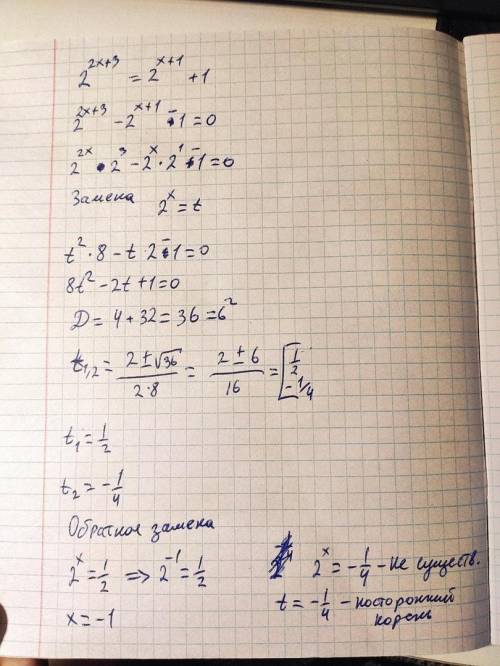 2^{2x+3} = 2^{x+1} + 1
2^{2x+3} - 2^{x+1} - 1 = 0
2^{2x} • 2^3 - 2^x • 2^1 - 1 = 0
Замена 2^x = t
t^2 • 8 - t • 2 - 1 = 0
8t^2 - 2t + 1 = 0
D = 4 + 32 = 36 = 6^2
t_{1,2} = (2 ± √36)/(2·8) = (2 ± 6)/16 = [1/2
-1/4
t_1 = 1/2
t_2 = -1/4
Обратная замена
2^x = 1/2 => 2^{-1} = 1/2
x = -1
2^x = -1/4 - не существ.
t = -1/4 - посторонний
корень